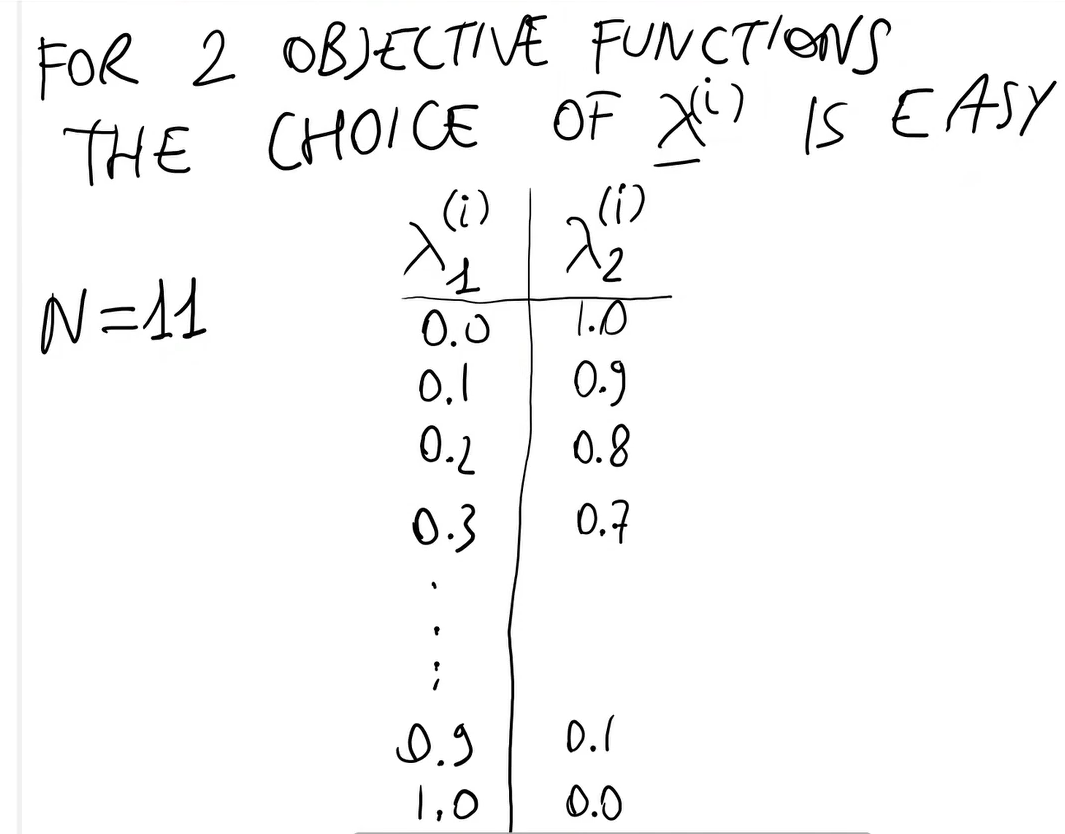 FOR 2 OBJECTIVE FUNCTIONS
THE CHOICE OF λ^(i) IS EASY
λ_1^(i) λ_2^(i)
N=11
0.0 1.0
0.1 0.9
0.2 0.8
0.3 0.7
0.9 0.1
1.0 0.0